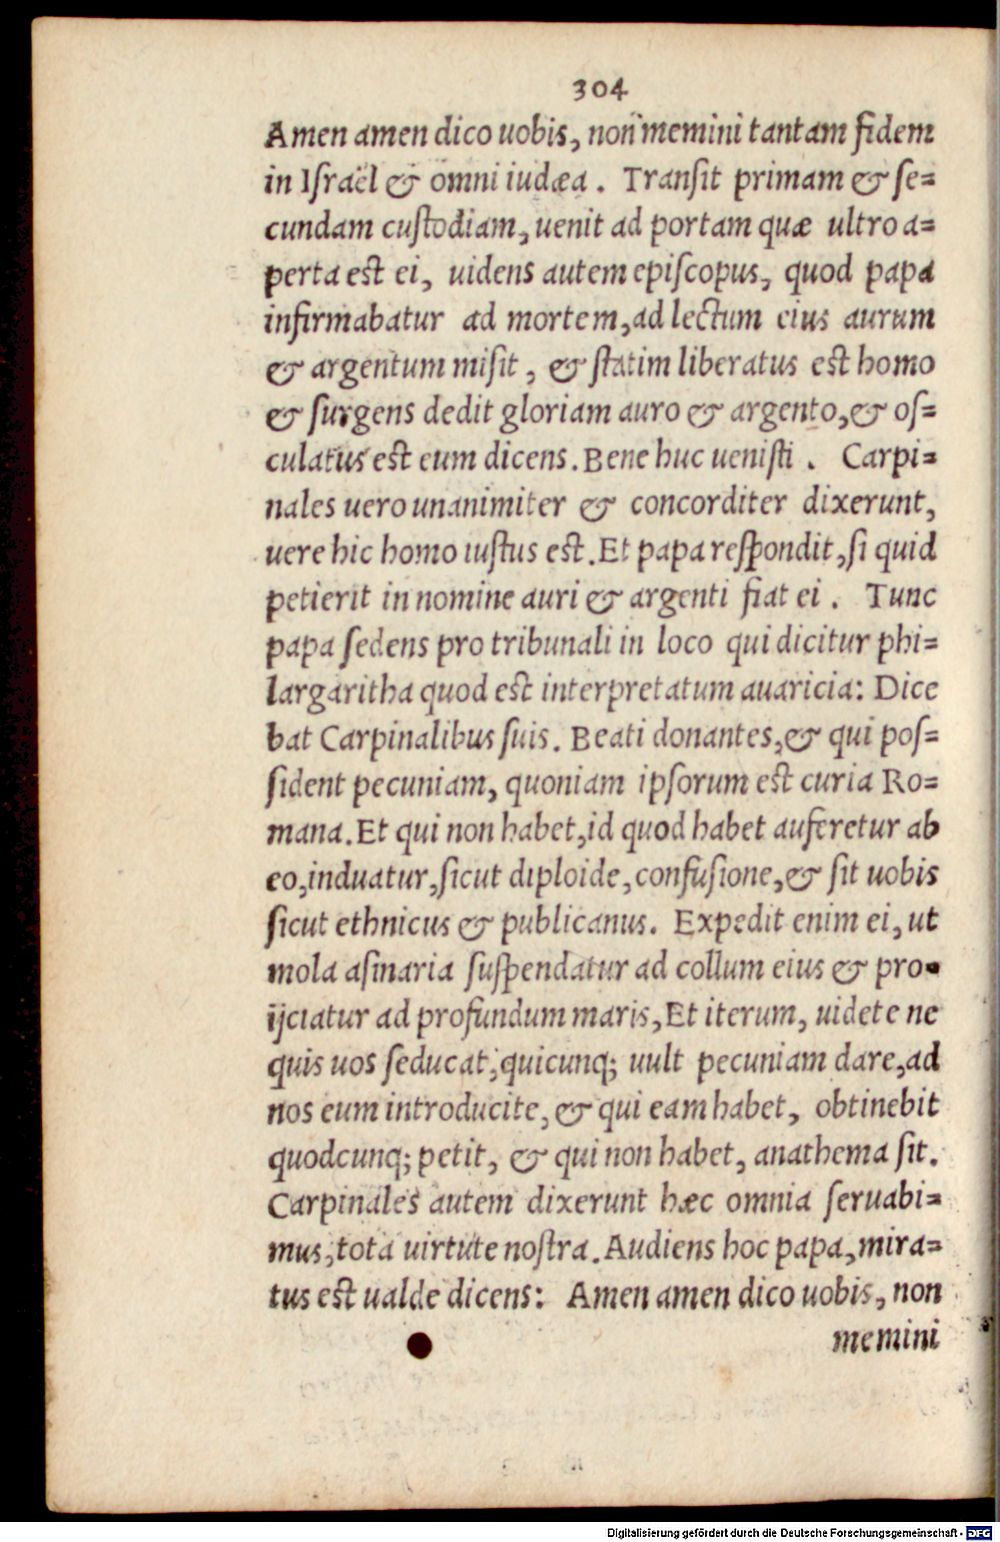 304
Amen amen dico uobis, non memini tantam fidem
in Israël & omni iudæa. Transit primam & se=
cundam custodiam, uenit ad portam quæ ultro a=
perta est ei, uidens autem episcopus, quod papa
infirmabatur ad mortem, ad lectum eius aurum
& argentum misit, & statim liberatus est homo
& surgens dedit gloriam auro & argento, & os=
culatus est eum dicens. Bene huc uenisti. Carpi=
nales uero unanimiter & concorditer dixerunt,
uere hic homo iustus est. Et papa respondit, si quid
petierit in nomine auri & argenti fiat ei. Tunc
papa sedens pro tribunali in loco qui dicitur phi=
largaritha quod est interpretatum auaricia: Dice
bat Carpinalibus suis. Beati donantes, & qui pos=
sident pecuniam, quoniam ipsorum est curia Ro=
mana. Et qui non habet, id quod habet auferetur ab
eo, induatur, sicut diploide, confusione, & sit uobis
sicut ethnicus & publicanus. Expedit enim ei, ut
mola asinaria suspendatur ad collum eius & pro=
ijciatur ad profundum maris, Et iterum, uidete ne
quis uos seducat, quicunq; uult pecuniam dare, ad
nos eum introducite, & qui eam habet, obtinebit
quodcunq; petit, & qui non habet, anathema sit.
Carpinales autem dixerunt hæc omnia seruabi=
mus, tota uirtute nostra. Audiens hoc papa, mira=
tus est ualde dicens: Amen amen dico uobis, non
memini
Digitalisierung gefördert durch die Deutsche Forschungsgemeinschaft - DFG